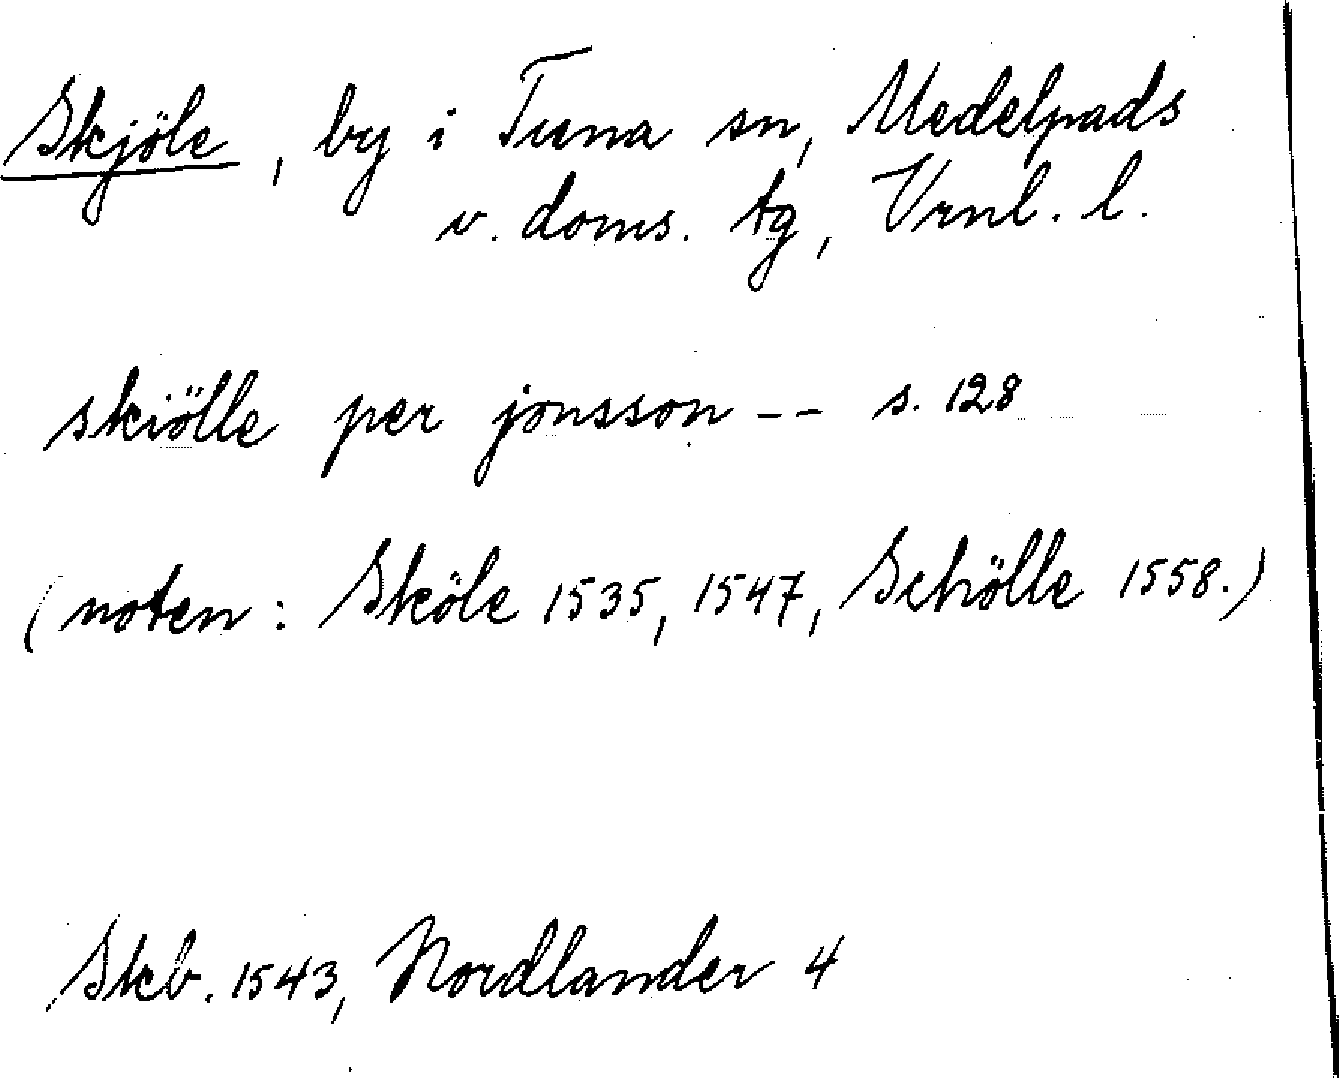 Skjöle, by i Tuna sn, Medelpads
v. doms. tg, Vrnl. l.
skiölle per jonsson -- s. 128
(noten: Sköle 1535, 1547, Schölle 1558.)
Skb. 1543, Nordlander 4